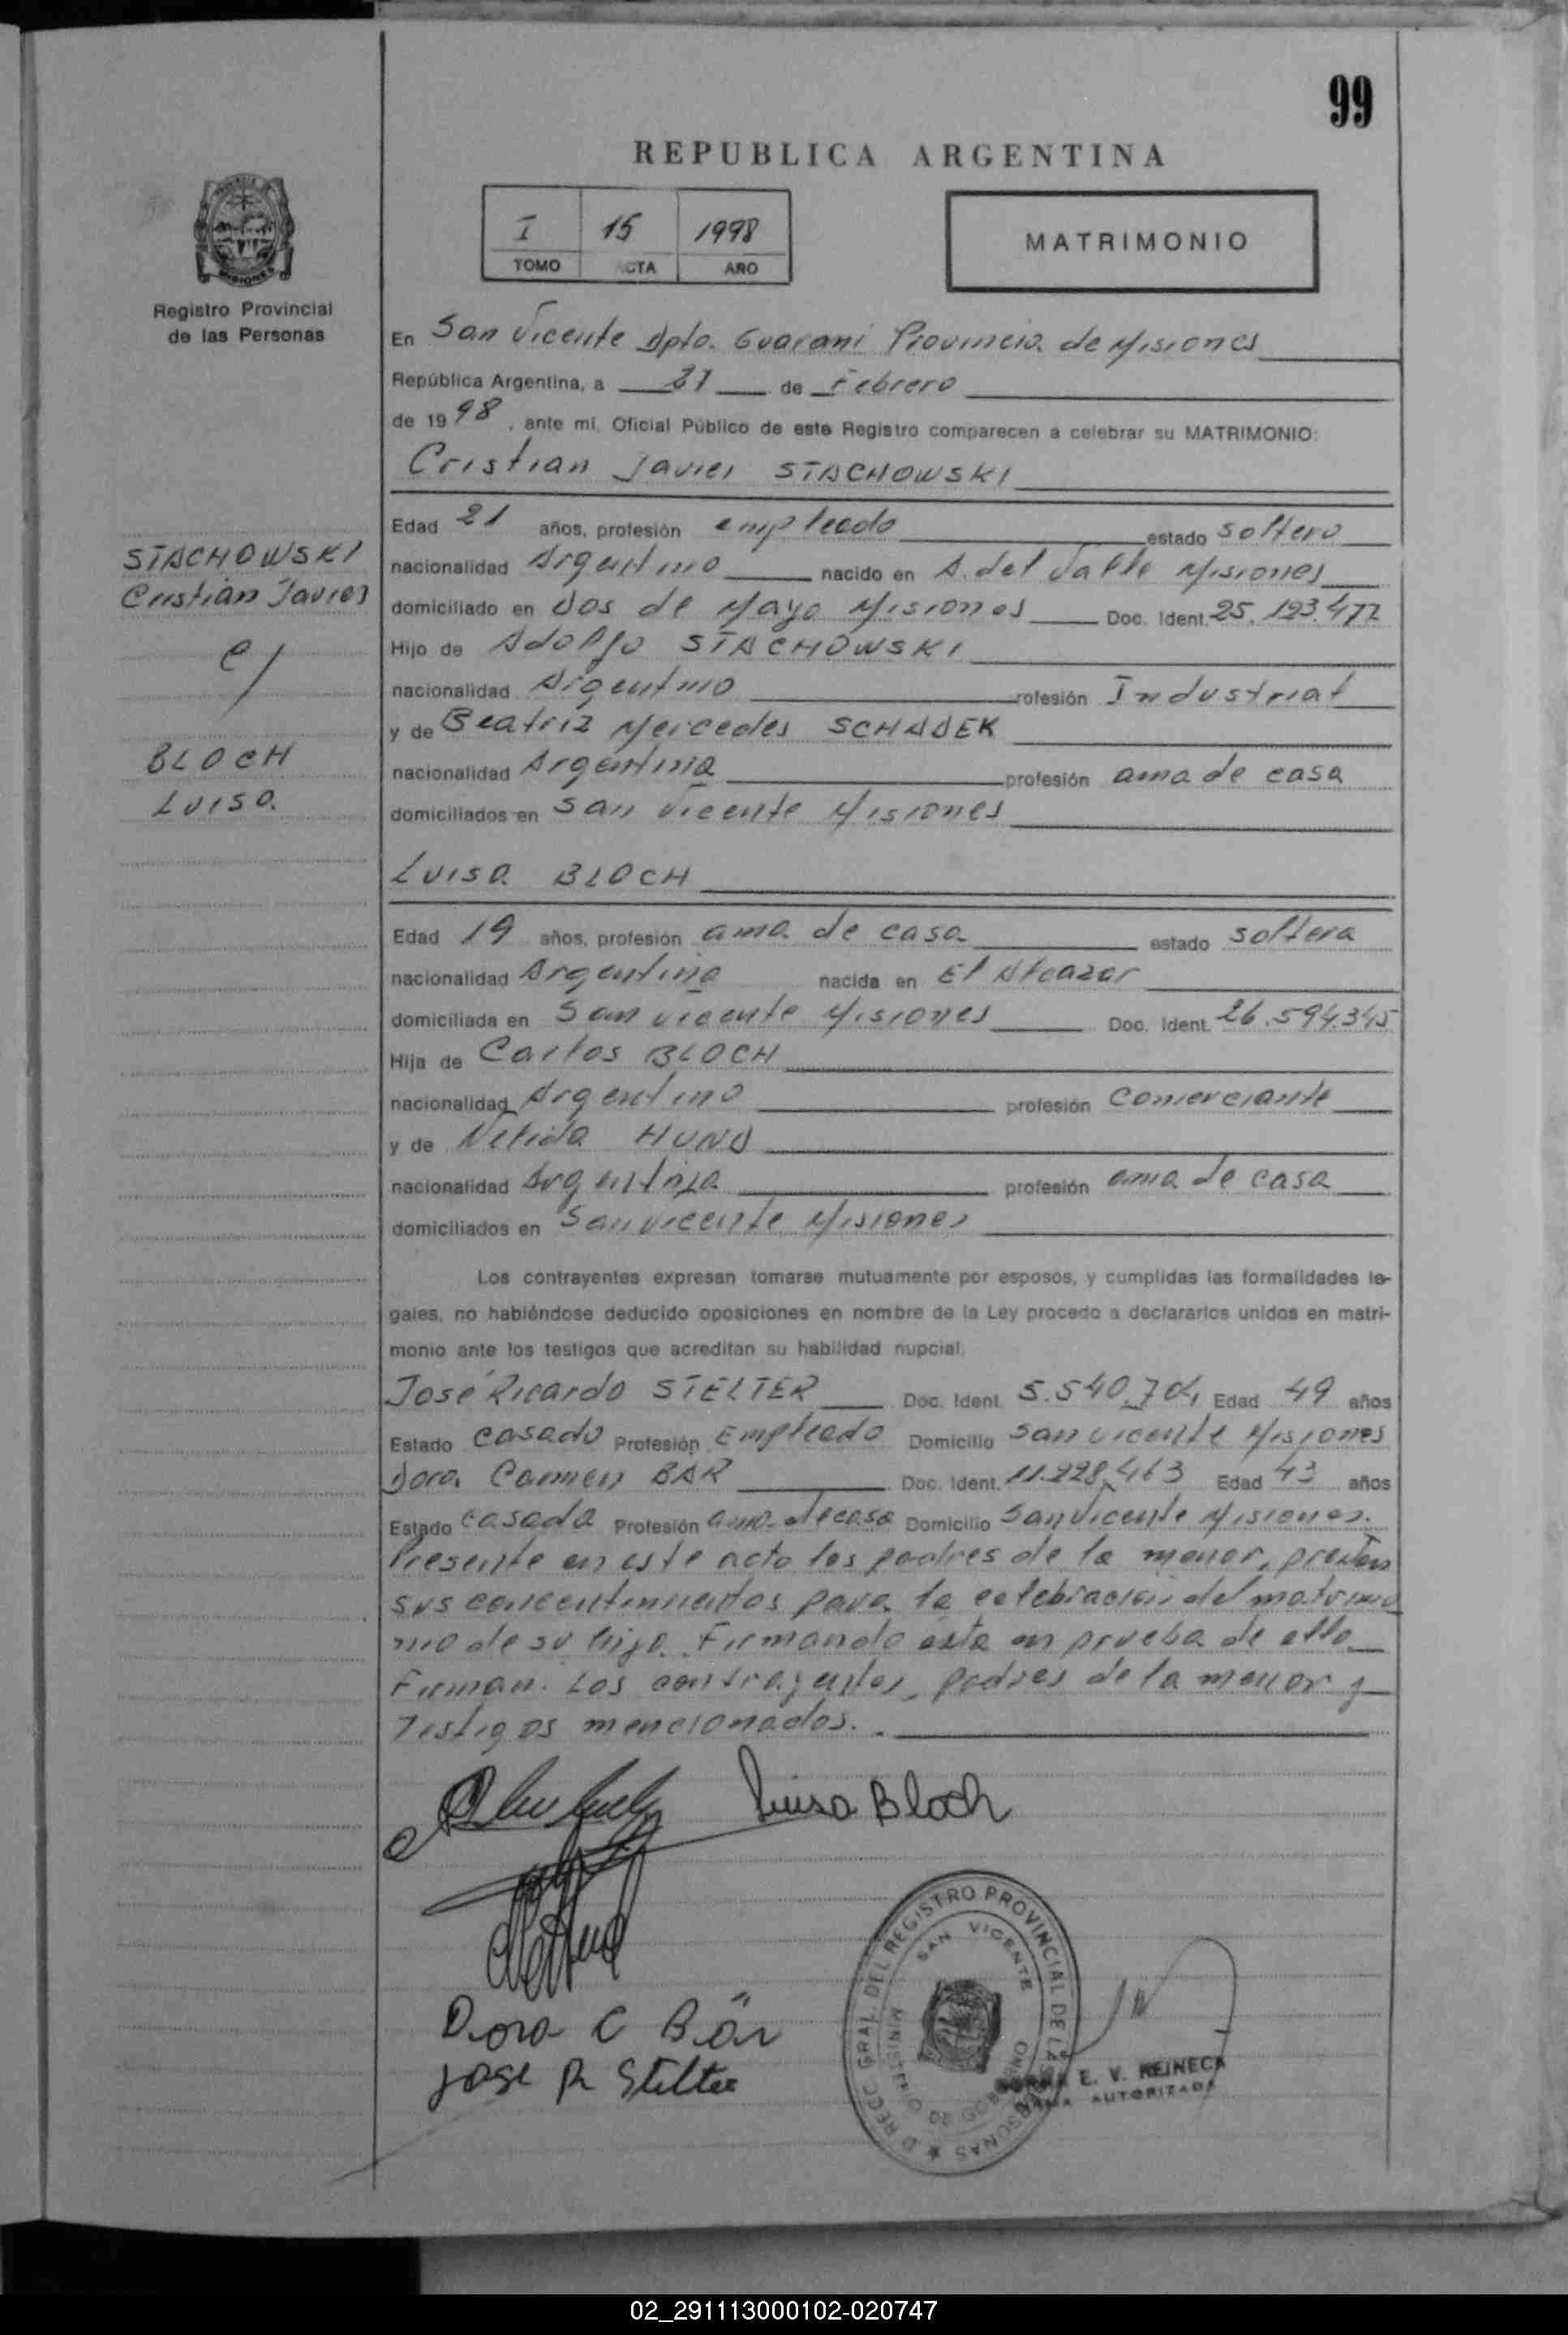 99
REPUBLICA ARGENTINA
I 15 1998
TOMO ACTA AÑO
MATRIMONIO
Registro Provincial
de las Personas
En San Vicente Dpto. Guaraní Provincia de Misiones
República Argentina, a de Febrero
de 1998, ante mi, Oficial Público de este Registro comparecen a celebrar su MATRIMONIO:
Cristian Javier STACHOWSKI
Edad 21 años, profesión empleado estado soltero
STACHOWSKI
Cristian Javier
c/
BLOCH
LUISA
nacionalidad Argentino nacido en A. del Valle Misiones
domiciliado en Dos de Mayo Misiones Doc. Ident. 25.123.477
Hijo de Adolfo STACHOWSKI
nacionalidad Argentino rofesión Industrial
y de Beatriz Mercedes SCHADEK
nacionalidad Argentina profesión ama de casa
domiciliados en San Vicente Misiones
Luisa BLOCH
Edad 19 años, profesión ama de casa estado soltera
nacionalidad Argentina nacida en El Alcazar
domiciliada en San Vicente Misiones Doc. Ident. 26.594.345
Hija de Carlos BLOCH
nacionalidad Argentino profesión Comerciante
y de Nelida HUND
nacionalidad Argentina profesión ama de casa
domiciliados en San Vicente Misiones
Los contrayentes expresan tomarse mutuamente por esposos, y cumplidas las formalidades le-
gales, no habiéndose deducido oposiciones en nombre de la Ley procedo a declararlos unidos en matri-
monio ante los testigos que acreditan su habilidad nupcial.
José Ricardo STELTER Doc. Ident. 5.540.704 Edad 49 años
Estado casado Profesión Empleado Domicilio San Vicente Misiones
Dora Carmen BAR Doc. Ident. 11.228.463 Edad 43 años
Estado casada Profesión ama de casa Domicilio San Vicente Misiones.
Presente en este acto los padres de la menor, prestan
sus concentimientos para la celebracion del matrimo
nio de su hija. Firmando esta en prueba de ello
Firman. Los contrayentes, padres de la menor y
Testigos mencionados.
Luisa Bloch
Dora C Bär
Jose R Stelter
DIRECC. GRAL. DEL REGISTRO PROVINCIAL DE LAS PERSONAS
SAN VICENTE
MINISTERIO DE GOBIERNO
E. V. REINECK
AUTORIZADA
02_291113000102-020747